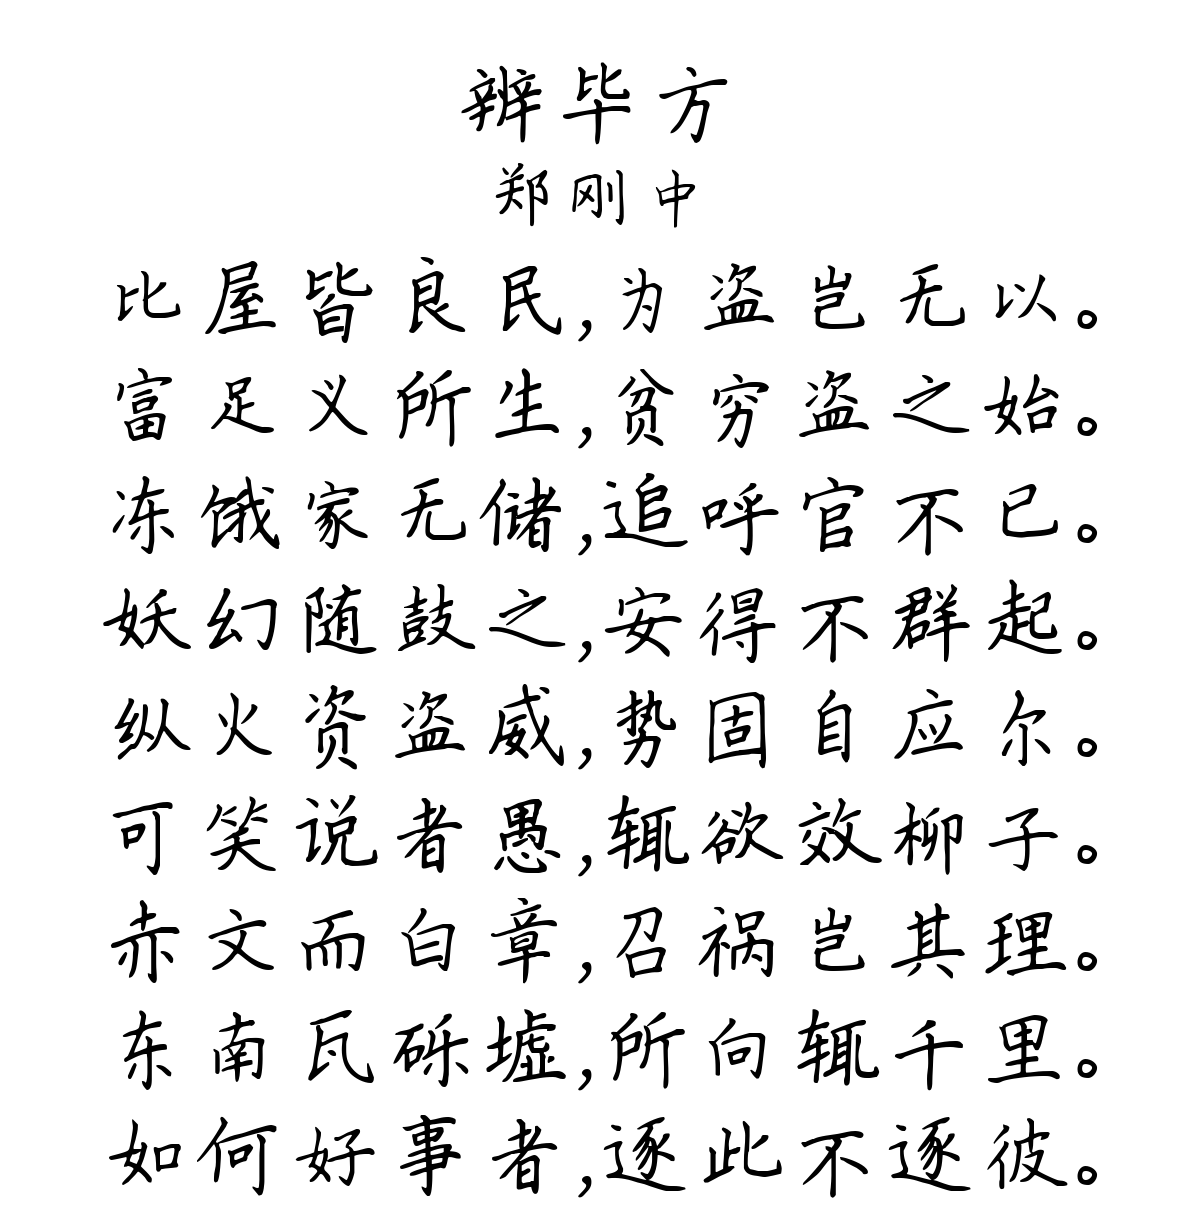 辨毕方
郑刚中
比屋皆良民,为盗岂无以。
富足义所生,贫穷盗之始。
冻饿家无储,追呼官不已。
妖幻随鼓之,安得不群起。
纵火资盗威,势固自应尔。
可笑说者愚,辄欲效柳子。
赤文而白章,召祸岂其理。
东南瓦砾墟,所向辄千里。
如何好事者,逐此不逐彼。